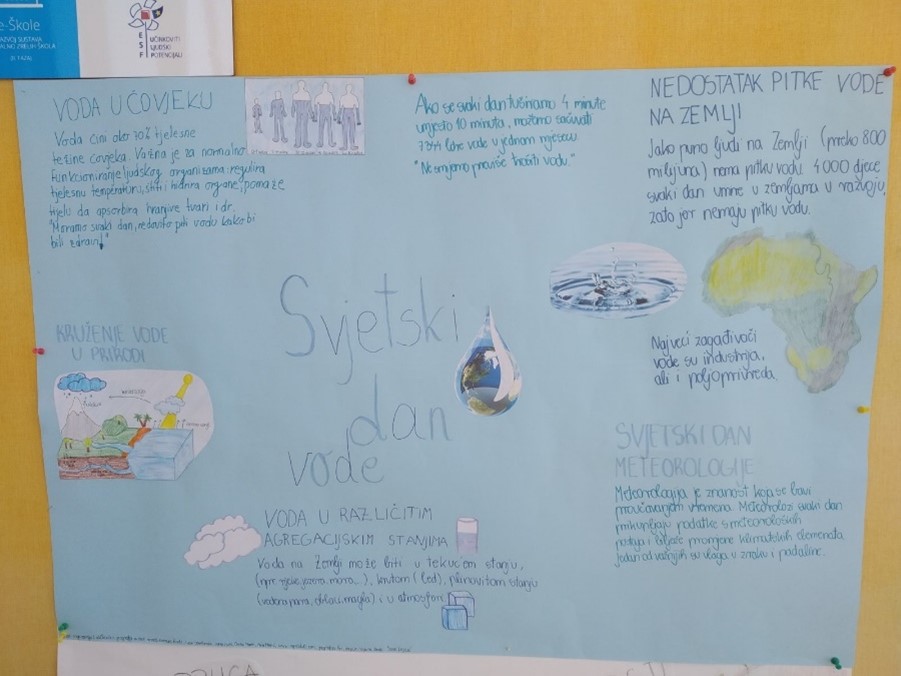 e-Škole
RAZVOJ SUSTAVA
DIGITALNO ZRELIH ŠKOLA
(II. FAZA)
ESF
UČINKOVITI
LJUDSKI
POTENCIJALI
VODA U ČOVJEKU
Voda čini oko 70% tjelesne
težine čovjeka. Važna je za normalno
funkcioniranje ljudskog organizama: regulira
tjelesnu temperaturu, štiti i hidrira organe, pomaže
tijelu da apsorbira hranjive tvari i dr.
"Moramo svaki dan, redovito piti vodu kako bi
bili zdravi!"
Ako se svaki dan tuširamo 4 minute
umjesto 10 minuta, možemo sačuvati
litre vode u jednom mjesecu
"Ne smijemo previše trošiti vodu."
NEDOSTATAK PITKE VODE
NA ZEMLJI
Jako puno ljudi na Zemlji (preko 800
milijuna) nema pitku vodu. 4 000 djece
svaki dan umre u zemljama u razvoju,
zato jer nemaju pitku vodu.
Najveći zagađivači
vode su industrija,
ali i poljoprivreda.
Svjetski
dan
vode
KRUŽENJE VODE
U PRIRODI
SVJETSKI DAN
METEOROLOGIJE
Meteorologija je znanost koja se bavi
proučavanjem vremena. Meteorolozi svaki dan
prikupljaju podatke s meteoroloških
postaja i bilježe promjene klimatskih elemenata.
Jedan od važnijih su vlaga u zraku i padaline.
VODA U RAZLIČITIM
AGREGACIJSKIM STANJIMA
Voda na Zemlji može biti u tekućem stanju,
(npr. rijeke, jezera, mora,...), krutom (led), plinovitom stanju
(vodena para, oblaci, magla) i u atmosferi.